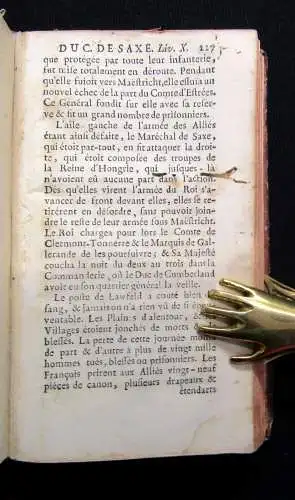 DUC. DE SAXE. Liv. X. 227
que protégée par toute leur infanterie,
fut mise totalement en déroute. Pendant
qu'elle fuioit vers Maëstricht, elle essuïa un
nouvel échec de la part du Comte d'Estrées.
Ce Général fondit sur elle avec sa reser-
ve & fit un grand nombre de prisonniers.
L'aîle gauche de l'armée des Alliés
étant ainsi défaite, le Maréchal de Saxe,
qui étoit par-tout, en fit attaquer la droi-
te, qui étoit composée des troupes de
la Reine d'Hongrie, qui jusques-là
n'avoient eû aucune part dans l'action.
Dès qu'elles virent l'armée du Roi s'a-
vancer de front devant elles, elles se re-
tirérent en désordre, sans pouvoir join-
dre le reste de leur armée sous Mastricht.
Le Roi chargea pour lors le Comte de
Clermont-Tonnerre & le Marquis de Gal-
lerande de les poursuivre; & Sa Majesté
coucha la nuit du deux au trois dans la
Commanderie, où le Duc de Cumberland
avoit eu son quartier général la veille.
Le poste de Lawfeld a couté bien du
sang, & jamais on n'a rien vû de si épou-
ventable. Les Plaines d'alentour, & les
Villages étoient jonchés de morts & de
blessés. La perte de cette journée monta
de part & d'autre à plus de vingt mille
hommes tués, blessés ou prisonniers. Les
François prirent aux Alliés vingt-neuf
piéces de canon, plusieurs drapeaux &
étendarts